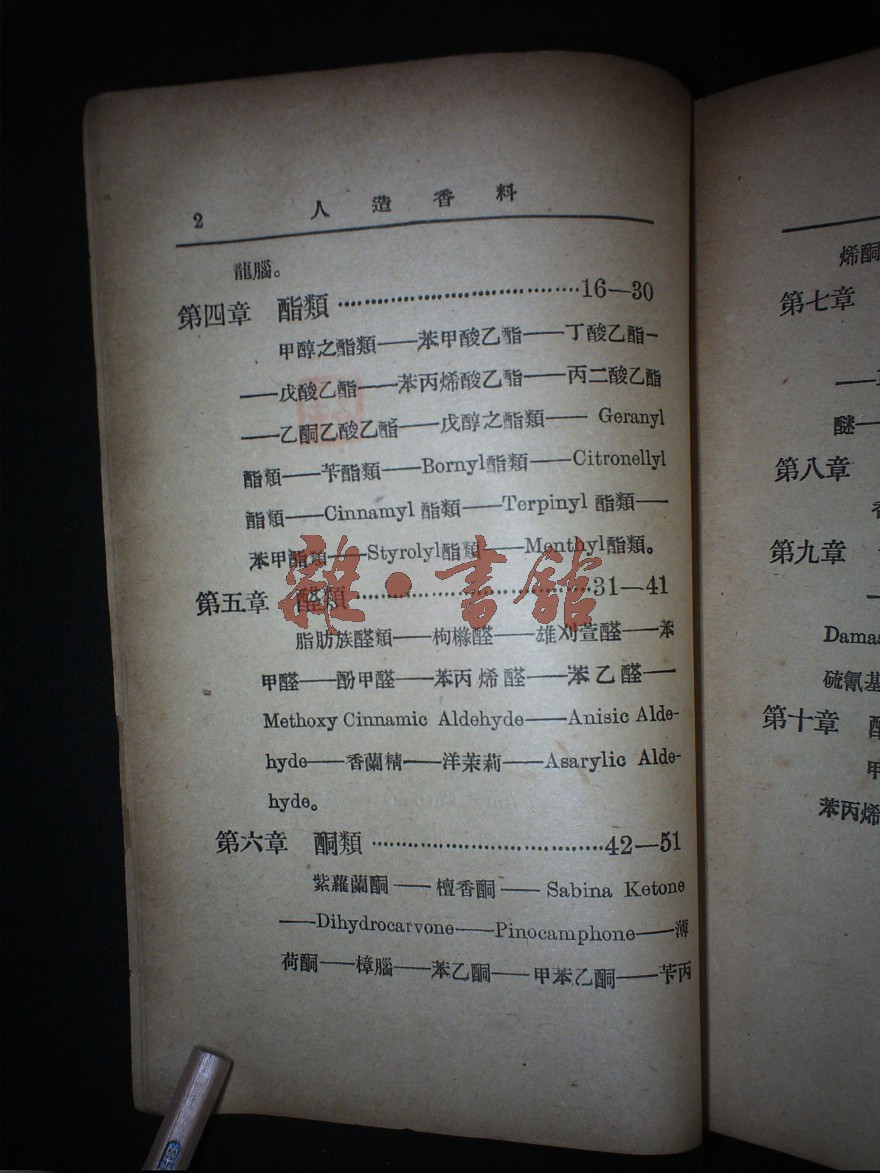 2 人造香料
龍腦。
第四章 酯類 ……………………………16—30
甲醇之酯類——苯甲酸乙酯——丁酸乙酯—
—戊酸乙酯——苯丙烯酸乙酯——丙二酸乙酯
——乙酮乙酸乙酯——戊醇之酯類—— Geranyl
酯類——苄酯類——Bornyl酯類——Citronellyl
酯類——Cinnamyl 酯類——Terpinyl 酯類——
苯甲酯類——Styrolyl酯類——Menthyl酯類。
第五章 醛類 ……………………………31—41
脂肪族醛類——枸櫞醛——雄刈萱醛——苯
甲醛——酚甲醛——苯丙烯醛——苯乙醛——
Methoxy Cinnamic Aldehyde——Anisic Alde-
hyde——香蘭精——洋茉莉——Asarylic Alde-
hyde。
第六章 酮類 ……………………………42—51
紫蘿蘭酮——檀香酮—— Sabina Ketone
——Dihydrocarvone——Pinocamphone——薄
荷酮——樟腦——苯乙酮——甲苯乙酮——苄丙
烯酮
第七章
醚—
第八章
第九章
Damas
硫氰基
第十章
苯丙烯
雜·書館